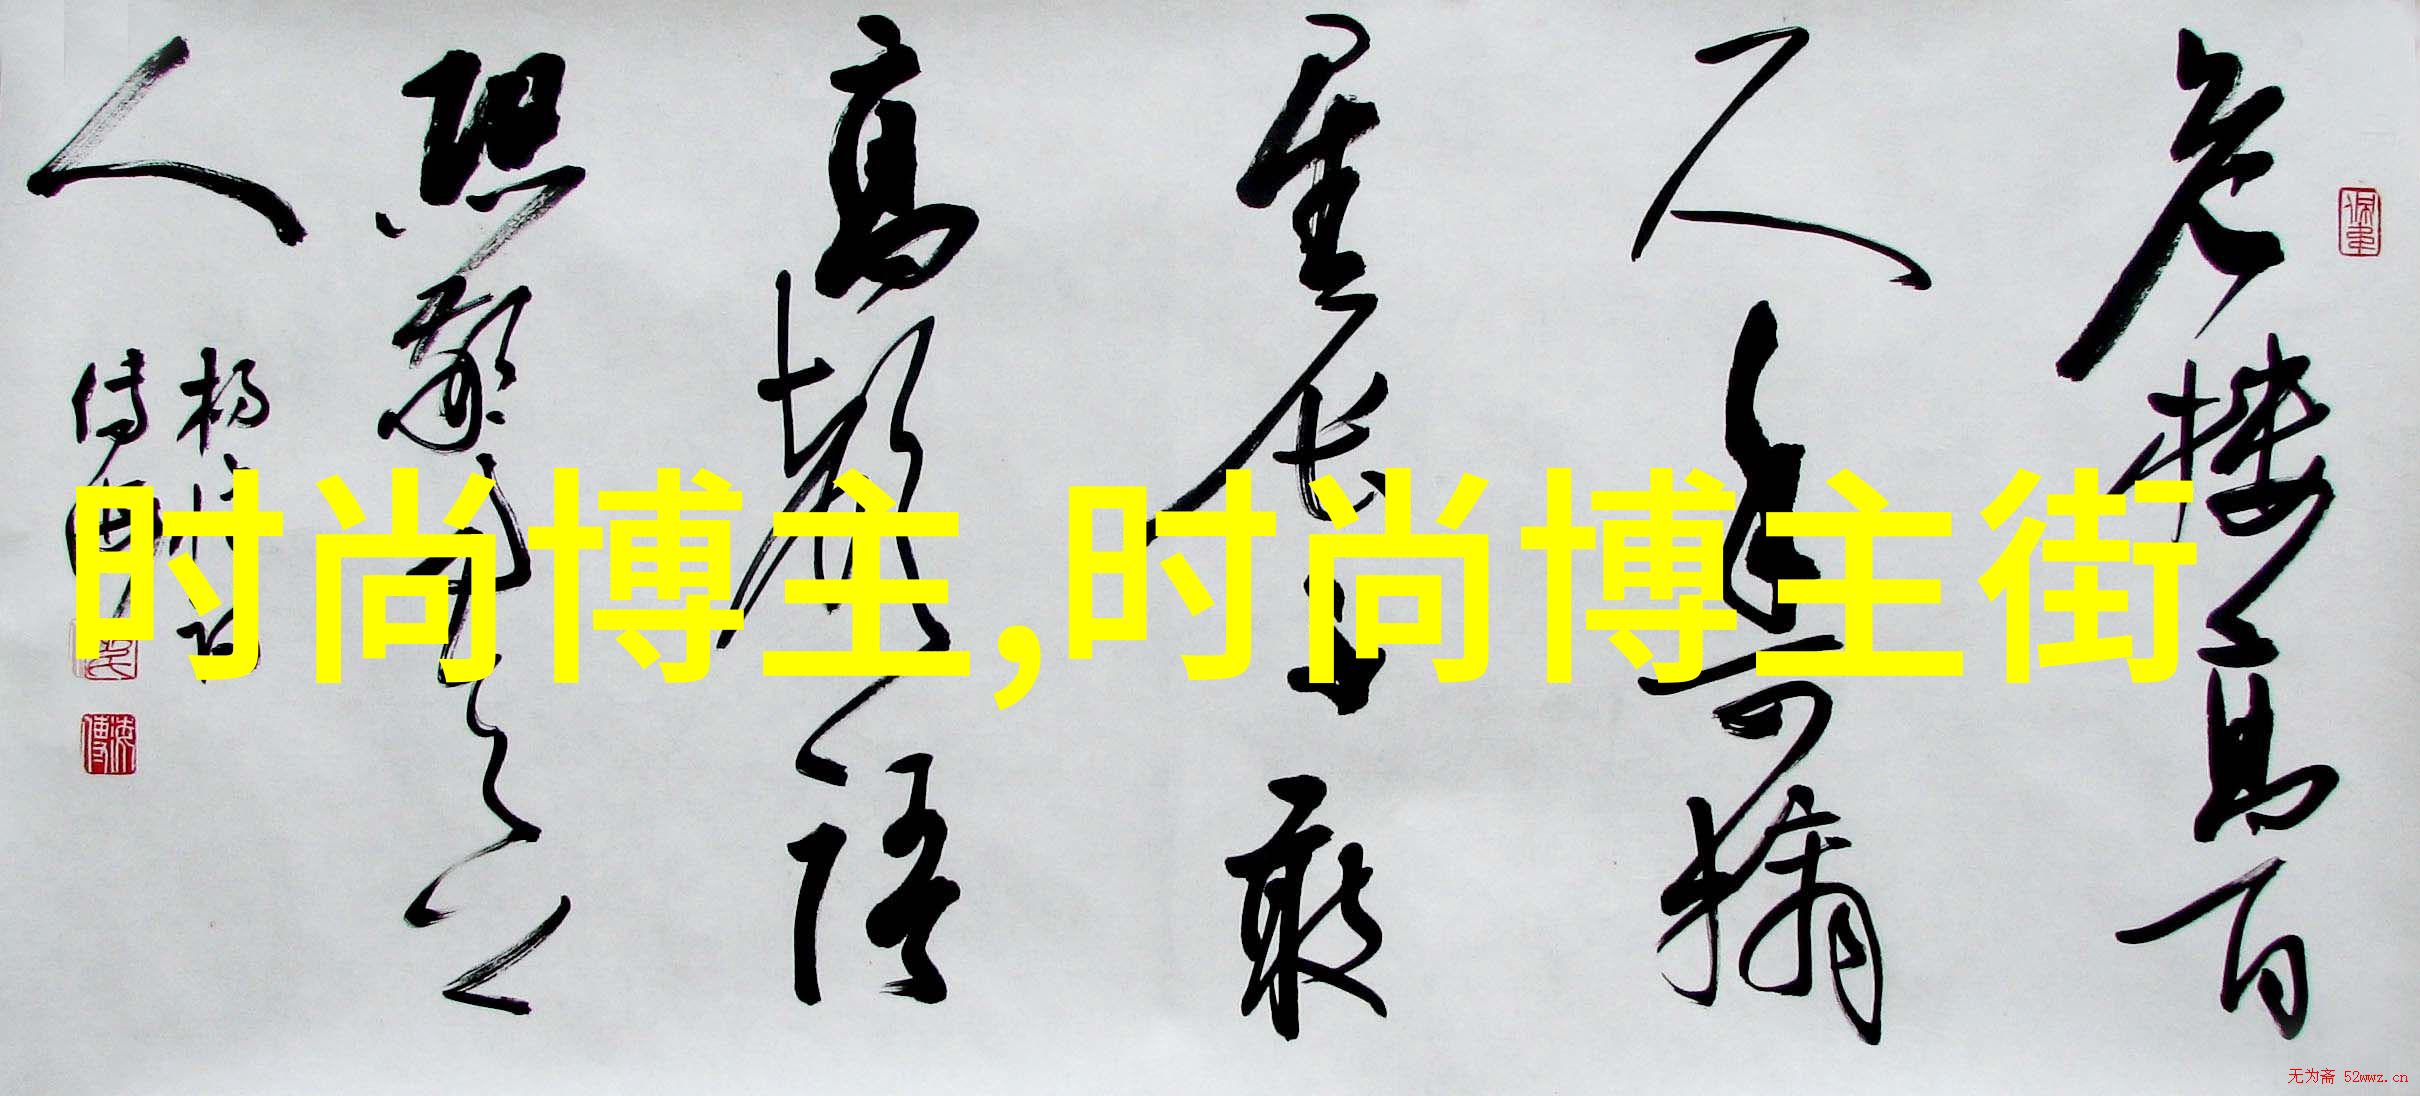 危楼高百
尺手可摘
星辰不敢
高聲語
恐驚天上
人
时尚博主,时尚博主街
无为斋 52wwz.cn